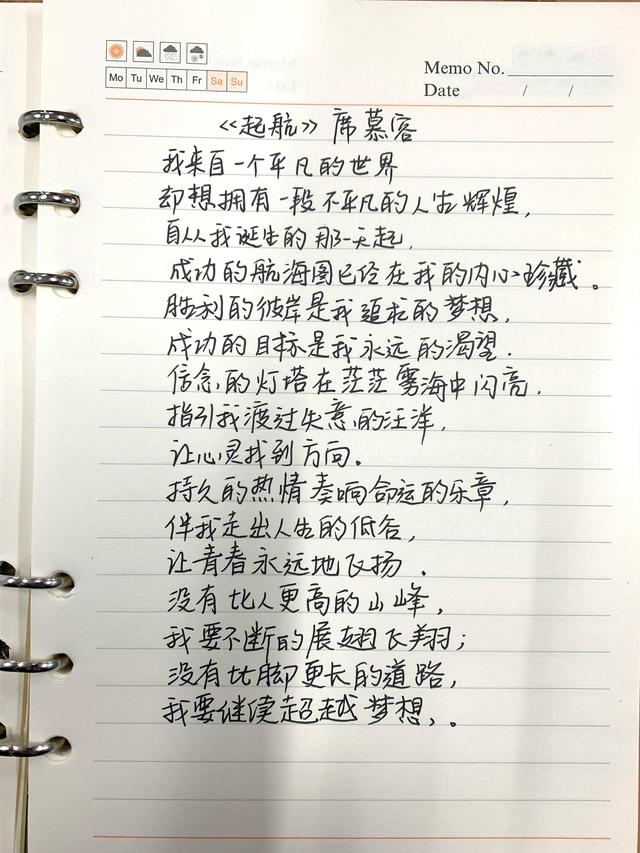 Mo Tu We Th Fr Sa Su
Memo No.
Date / /
《起航》席慕容
我来自一个平凡的世界
却想拥有一段不平凡的人生辉煌,
自从我诞生的那一天起,
成功的航海图已经在我的内心珍藏。
胜利的彼岸是我追求的梦想,
成功的目标是我永远的渴望.
信念的灯塔在茫茫雾海中闪亮.
指引我渡过失意的汪洋,
让心灵找到方向。
持久的热情奏响命运的乐章,
伴我走出人生的低谷,
让青春永远地飞扬.
没有比人更高的山峰,
我要不断的展翅飞翔;
没有比脚更长的道路,
我要继续超越梦想,。